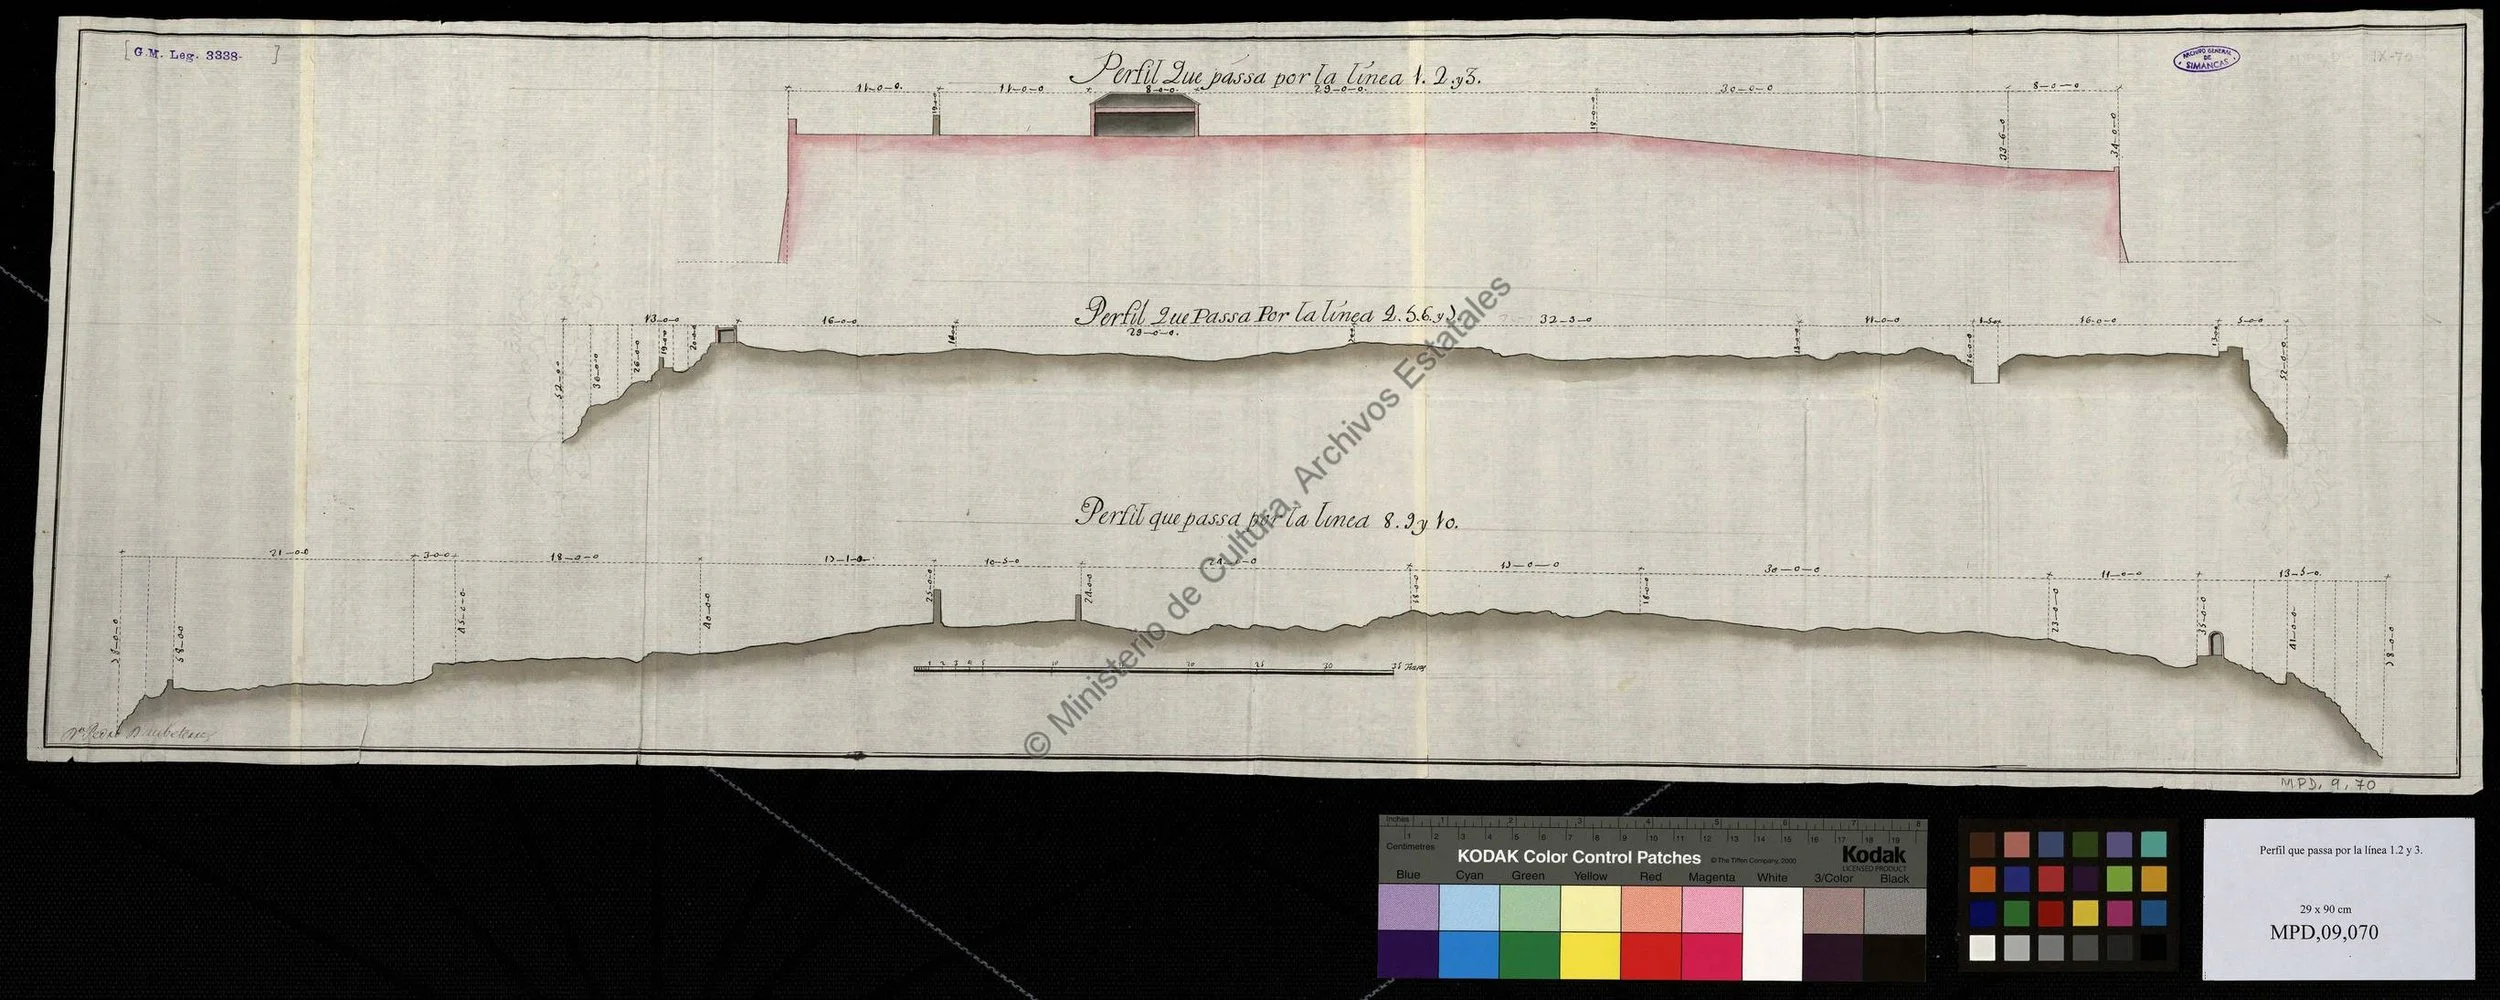 [ G.M. Leg. 3338- ]
ARCHIVO GENERAL
DE
SIMANCAS
IX-70
Perfil Que passa por la línea 1. 2. y 3.
11-0-0.
11-0-0
8-0-0.
29-0-0.
30-0-0
8-0-0
18-0-0
33-6-0
34-0-0
Perfil Que Passa Por la línea 2. 5. 6. y 7.
13-0-0
16-0-0
29-0-0.
32-3-0
11-0-0
16-0-0
5-0-0
52-0-0
36-0-0
26-0-0
19-0-0
20-0-0
52-0-0
Perfil que passa por la línea 8. 9 y 10.
21-0-0
3-0-0
18-0-0
17-1-0
10-5-0
24-0-0
17-0-0
30-0-0
11-0-0
13-5-0
78-0-0
58-0-0
45-0-0
40-0-0
25-0-0
24-0-0
18-0-0
18-0-0
23-0-0
35-0-0
41-0-0
78-0-0
1 2 3 4 5 10 20 25 30 35
© Ministerio de Cultura, Archivos Estatales
MPD, 9, 70
Inches 1 2 3 4 5 6 7 8
Centimetres 1 2 3 4 5 6 7 8 9 10 11 12 13 14 15 16 17 18 19
KODAK Color Control Patches © The Tiffen Company, 2000 Kodak
LICENSED PRODUCT
Blue Cyan Green Yellow Red Magenta White 3/Color Black
Perfil que passa por la línea 1.2 y 3.
29 x 90 cm
MPD,09,070